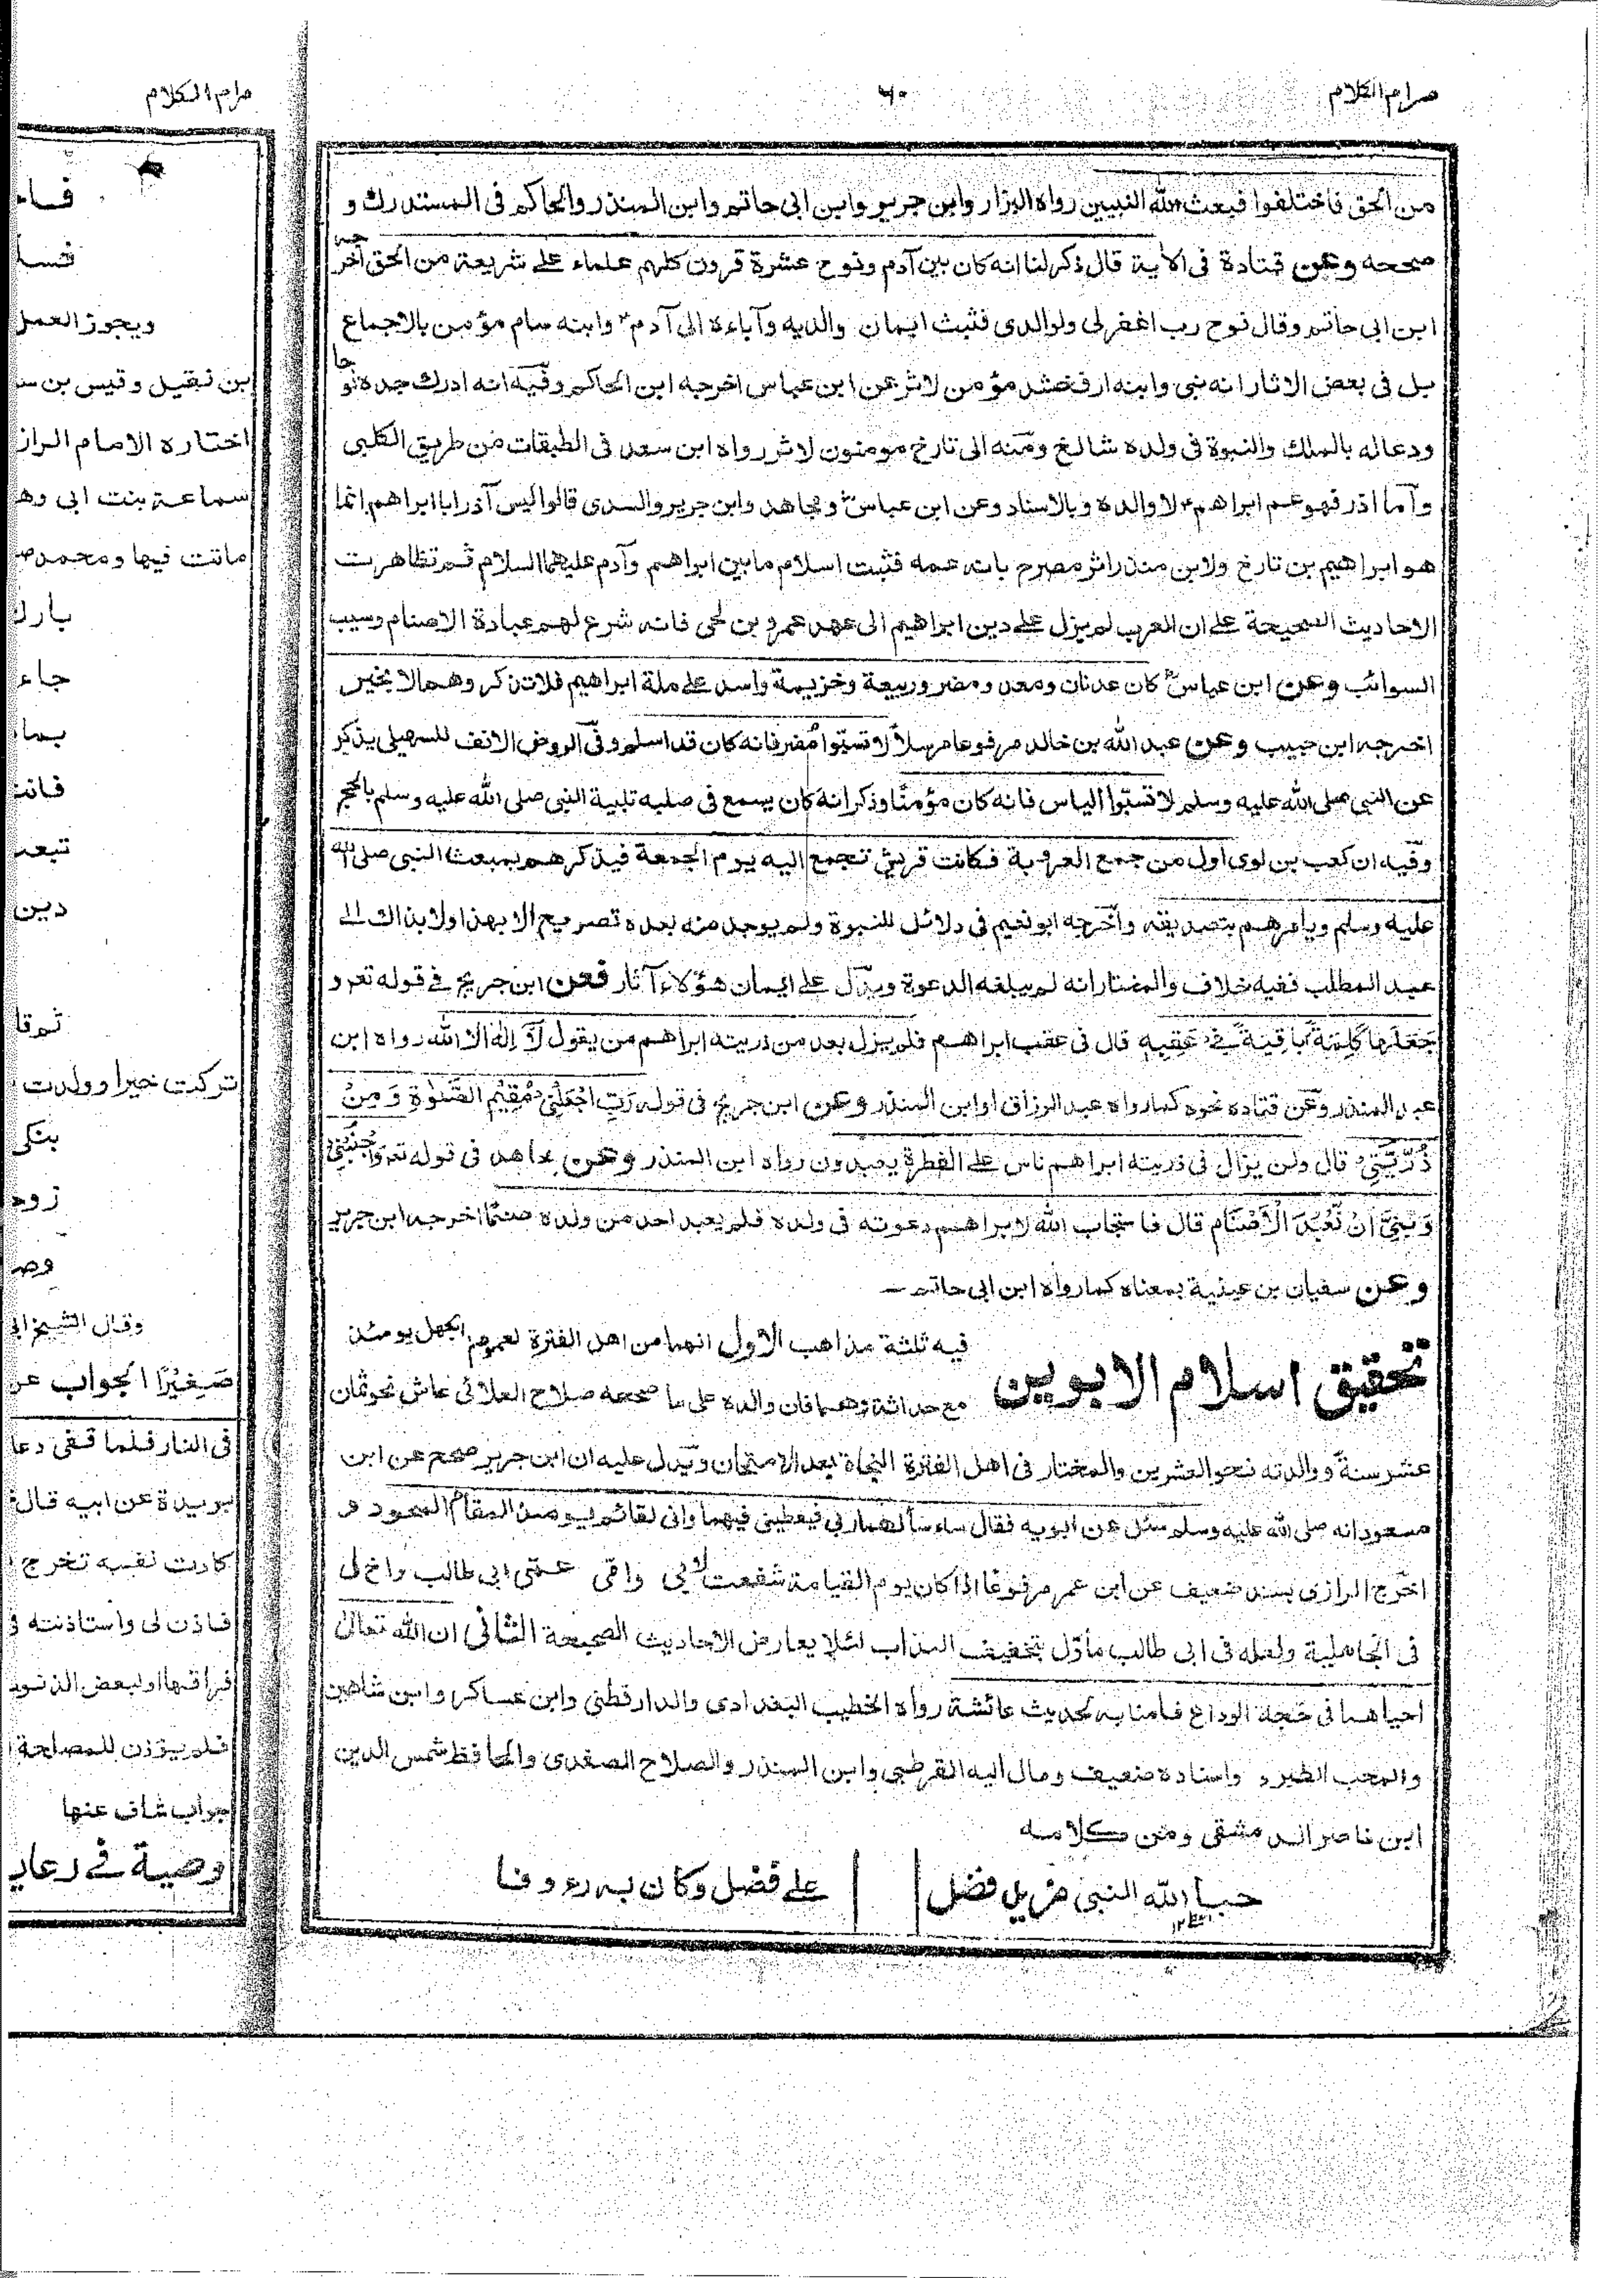 مرام الكلام
٦٠
من الحق فاختلفوا فبعث الله النبيين رواه البزار وابن جرير وابن ابى حاتم وابن المنذر والحاكم فى المستدرك و
صححه وعن قتادة فى الآية قال ذكر لنا انه كان بين آدم ونوح عشرة قرون كلهم علماء على شريعة من الحق اخرجه
ابن ابى حاتم وقال نوح رب اغفر لى ولوالدى فثبت ايمان والديه وآباءه الى آدم وابنه سام مؤمن بالاجماع
بل فى بعض الاثار انه نبى وابنه ارفخشد مؤمن لاثر عن ابن عباس اخرجه ابن الحاكم وفيه انه ادرك جده نوحا
ودعا له بالملك والنبوة فى ولده شالخ ومنه الى تارخ مومنون لاثر رواه ابن سعد فى الطبقات من طريق الكلبى
وآما اذر فهو عم ابراهم لا والده وبالاسناد وعن ابن عباس ومجاهد وابن جرير والسدى قالوا ليس آذر ابا ابراهم انما
هو ابراهيم بن تارخ ولابن منذر اثر مصرح بانه عمه فثبت اسلام مابين ابراهم وآدم عليهما السلام ثم تظاهرت
الاحاديث الصحيحة على ان العرب لم يزل على دين ابراهيم الى عهد عمرو بن لحى فانه شرع لهم عبادة الاصنام وسيب
السوائب وعن ابن عباس كان عدنان ومعد ومضر وربيعة وخزيمة واسد على ملة ابراهيم فلا تذكروهم الا بخير
اخرجه ابن حبيب وعن عبد الله بن خالد مرفوعا مرسلا لا تسبوا مضر فانه كان قد اسلم وفى الروض الانف للسهيلى يذكر
عن النبى صلى الله عليه وسلم لا تسبوا الياس فانه كان مؤمنا وذكر انه كان يسمع فى صلبه تلبية النبى صلى الله عليه وسلم بالحج
وفيه ان كعب بن لوى اول من جمع العروبة فكانت قريش تجمع اليه يوم الجمعة فيذكرهم بمبعث النبى صلى الله
عليه وسلم ويامرهم بتصديقه وآخرجه ابو نعيم فى دلائل للنبوة ولم يوجد منه بعده تصريح الا بهذا ولا بذاك الى
عبد المطلب ففيه خلاف والمختار انه لم يبلغه الدعوة ويدل على ايمان هؤلاء آثار فعن ابن جريج فى قوله تعم و
جَعَلَهَا كَلِمَةً بَاقِيَةً فِي عَقِبِهِ قال فى عقب ابراهم فلم يزل بعد من ذريته ابراهم من يقول لا إله الا الله رواه ابن
عبد المنذر وعن قتاده نحوه كما رواه عبد الرزاق او ابن المنذر وعن ابن جريج فى قوله رَبِّ اجْعَلْنِي مُقِيْمَ الصَّلٰوةِ وَمِنْ
ذُرِّيَّتِيْ قال ولن يزال فى ذريته ابراهم ناس على الفطرة يعبدون رواه ابن المنذر وعن مجاهد فى قوله تعم وَاجْنُبْنِيْ
وَبَنِيَّ اَنْ نَّعْبُدَ الْاَصْنَام قال فاستجاب الله لابراهيم دعوته فى ولده فلم يعبد احد من ولده صنما اخرجه ابن جرير
وعن سفيان بن عينية بمعناه كما رواه ابن ابى حاتم
تحقيق اسلام الابوين
فيه ثلثة مذاهب الاول انهما من اهل الفترة لعموم الجهل يومئذ
مع حداثة وهما فان والده على ما صححه صلاح العلائى عاش نحو ثمان
عشر سنة ووالدته نحو العشرين والمختار فى اهل الفترة النجاة بعد الامتحان ويدل عليه ان ابن جرير صحح عن ابن
مسعود انه صلى الله عليه وسلم سئل عن ابويه فقال ساء سألهما ربى فيعطينى فيهما وانى لقائم يومئذ المقام المحمود و
اخرج الرازى بسند ضعيف عن ابن عمر مرفوعا اذا كان يوم القيامة شفعت لابى وامى عمتى ابى طالب واخ لى
فى الجاهلية ولعله فى ابى طالب مأول بتخفيف العذاب لئلا يعارض الاحاديث الصحيحة الثانى ان الله تعالى
احياهما فى حجة الوداع فامنا به لحديث عائشة رواه الخطيب البغدادى والدارقطنى وابن عساكر وابن شاهين
والمحب الطبرى واسناده ضعيف ومال اليه القرطبى وابن المنذر والصلاح الصفدى والحافظ شمس الدين
ابن ناصر الدمشقى ومن كلامه
حبا الله النبى مزيد فضل
على فضل وكان به رءوفا
مرام الكلام
ويجوز العمل
ابن نفيل وقيس بن
اختاره الامام الراز
سماعة بنت ابى وه
ماتت فيها ومحمد
بارك
جاء
بما
تبعد
دين
ثم قا
تركت خيرا وولدت
بنكى
زوج
وقال الشيخ
صَغِيْرًا الجواب عن
فى النار فلما قفى دعا
بريدة عن ابيه قال
كادت نفسه تخرج
فاذن لى واستاذنته فى
فراقها او لبعض الذنوب
فلم يؤذن للمصلحة
جواب شاف عنها
وصية فى رعاي